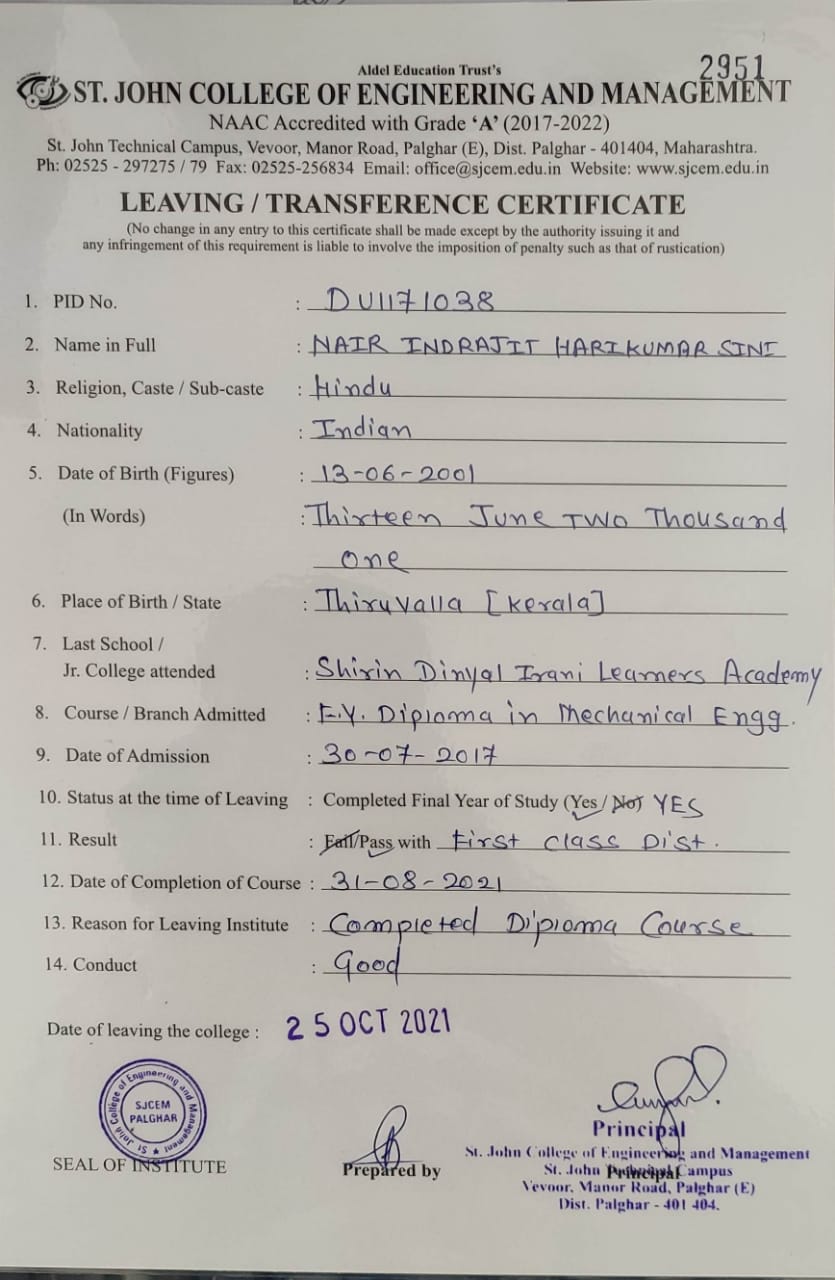 2951
Aldel Education Trust's
ST. JOHN COLLEGE OF ENGINEERING AND MANAGEMENT
NAAC Accredited with Grade ‘A’ (2017-2022)
St. John Technical Campus, Vevoor, Manor Road, Palghar (E), Dist. Palghar - 401404, Maharashtra.
Ph: 02525 - 297275 / 79 Fax: 02525-256834 Email: office@sjcem.edu.in Website: www.sjcem.edu.in
LEAVING / TRANSFERENCE CERTIFICATE
(No change in any entry to this certificate shall be made except by the authority issuing it and
any infringement of this requirement is liable to involve the imposition of penalty such as that of rustication)
1. PID No. : DU1171038
2. Name in Full : NAIR INDRAJIT HARIKUMAR SINI
3. Religion, Caste / Sub-caste : Hindu
4. Nationality : Indian
5. Date of Birth (Figures) : 13-06-2001
(In Words) : Thirteen June TWO Thousand
one
6. Place of Birth / State : Thiruvalla [kerala]
7. Last School /
Jr. College attended : Shirin Dinyal Irani Learners Academy
8. Course / Branch Admitted : F.Y. Diploma in Mechanical Engg.
9. Date of Admission : 30-07-2017
10. Status at the time of Leaving : Completed Final Year of Study (Yes / No) YES
11. Result : Fail/Pass with First class Dist.
12. Date of Completion of Course : 31-08-2021
13. Reason for Leaving Institute : Completed Diploma Course
14. Conduct : Good
Date of leaving the college : 25 OCT 2021
St. John College of Engineering and Management
SJCEM
PALGHAR
SEAL OF INSTITUTE
Prepared by
Principal
Principal
St. John College of Engineering and Management
St. John Campus
Vevoor, Manor Road, Palghar (E)
Dist. Palghar - 401 404.